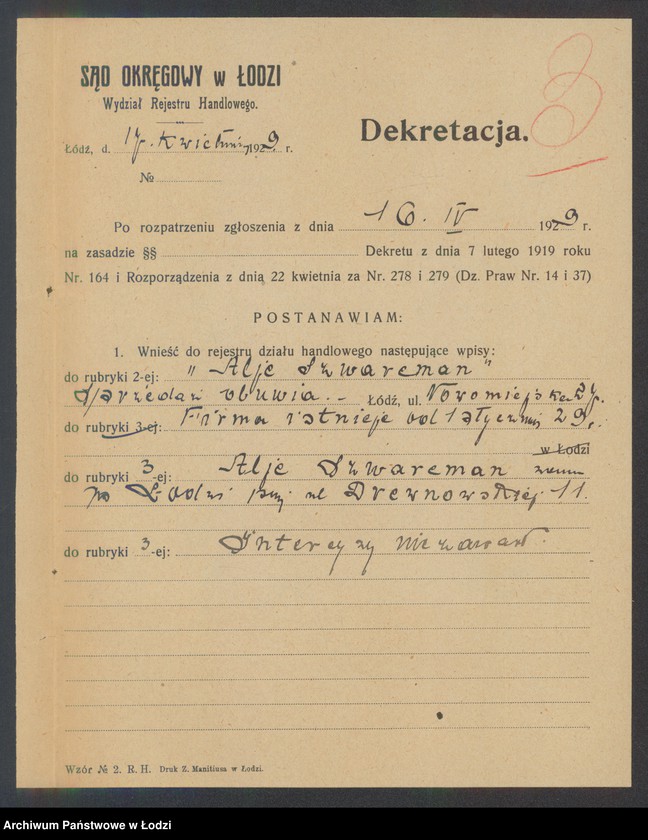 SĄD OKRĘGOWY w ŁODZI
Wydział Rejestru Handlowego.
Dekretacja.
3
Łódź, d. 17. kwietnia 1929 r.
№
Po rozpatrzeniu zgłoszenia z dnia 16. IV 1929 r.
na zasadzie §§ Dekretu z dnia 7 lutego 1919 roku
Nr. 164 i Rozporządzenia z dnią 22 kwietnia za Nr. 278 i 279 (Dz. Praw Nr. 14 i 37)
POSTANAWIAM:
1. Wnieść do rejestru działu handlowego następujące wpisy:
do rubryki 2-ej: "Alje Szwarcman"
Sprzedaż obuwia. – Łódź, ul. Nowomiejska 27.
do rubryki 3-ej: Firma istnieje od 1 stycznia 29.
w Łodzi
do rubryki 3-ej: Alje Szwarcman zam
w Łodzi przy ul Drewnowskiej 11.
do rubryki 3-ej: Intercyzy nie zawarł.
Wzór № 2. R. H. Druk Z. Manitiusa w Łodzi.
Archiwum Państwowe w Łodzi